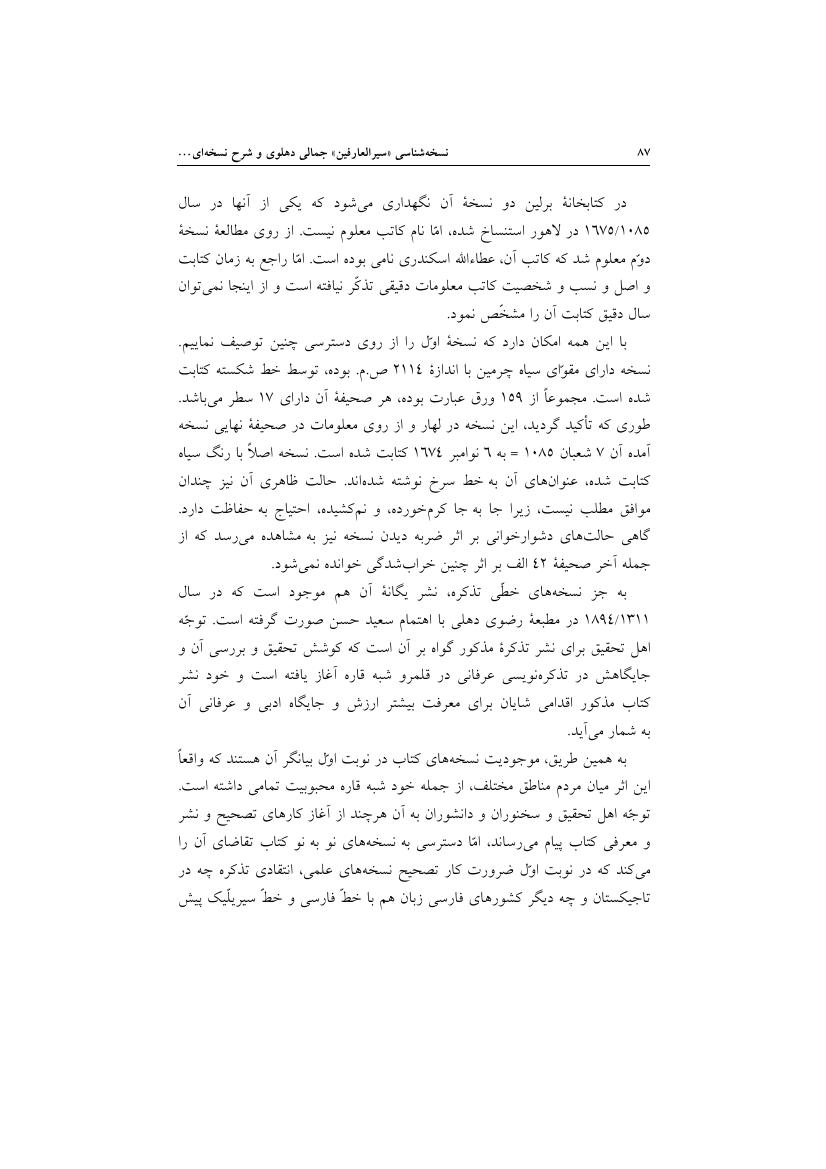 ۸۷ نسخه‌شناسی «سیرالعارفین» جمالی دهلوی و شرح نسخه‌ای...
در کتابخانهٔ برلین دو نسخهٔ آن نگهداری می‌شود که یکی از آنها در سال
۱۶۷۵/۱۰۸۵ در لاهور استنساخ شده، امّا نام کاتب معلوم نیست. از روی مطالعهٔ نسخهٔ
دوّم معلوم شد که کاتب آن، عطاءالله اسکندری نامی بوده است. امّا راجع به زمان کتابت
و اصل و نسب و شخصیت کاتب معلومات دقیقی تذکّر نیافته است و از اینجا نمی‌توان
سال دقیق کتابت آن را مشخّص نمود.
با این همه امکان دارد که نسخهٔ اوّل را از روی دسترسی چنین توصیف نماییم.
نسخه دارای مقوّای سیاه چرمین با اندازهٔ ۲۱۱۴ ص.م. بوده، توسط خط شکسته کتابت
شده است. مجموعاً از ۱۵۹ ورق عبارت بوده، هر صحیفهٔ آن دارای ۱۷ سطر می‌باشد.
طوری که تأکید گردید، این نسخه در لهار و از روی معلومات در صحیفهٔ نهایی نسخه
آمده آن ۷ شعبان ۱۰۸۵ = به ۶ نوامبر ۱۶۷۴ کتابت شده است. نسخه اصلاً با رنگ سیاه
کتابت شده، عنوان‌های آن به خط سرخ نوشته شده‌اند. حالت ظاهری آن نیز چندان
موافق مطلب نیست، زیرا جا به جا کرم‌خورده، و نم‌کشیده، احتیاج به حفاظت دارد.
گاهی حالت‌های دشوارخوانی بر اثر ضربه دیدن نسخه نیز به مشاهده می‌رسد که از
جمله آخر صحیفهٔ ۴۲ الف بر اثر چنین خراب‌شدگی خوانده نمی‌شود.
به جز نسخه‌های خطّی تذکره، نشر یگانهٔ آن هم موجود است که در سال
۱۸۹۴/۱۳۱۱ در مطبعهٔ رضوی دهلی با اهتمام سعید حسن صورت گرفته است. توجّه
اهل تحقیق برای نشر تذکرهٔ مذکور گواه بر آن است که کوشش تحقیق و بررسی آن و
جایگاهش در تذکره‌نویسی عرفانی در قلمرو شبه قاره آغاز یافته است و خود نشر
کتاب مذکور اقدامی شایان برای معرفت بیشتر ارزش و جایگاه ادبی و عرفانی آن
به شمار می‌آید.
به همین طریق، موجودیت نسخه‌های کتاب در نوبت اوّل بیانگر آن هستند که واقعاً
این اثر میان مردم مناطق مختلف، از جمله خود شبه قاره محبوبیت تمامی داشته است.
توجّه اهل تحقیق و سخنوران و دانشوران به آن هرچند از آغاز کارهای تصحیح و نشر
و معرفی کتاب پیام می‌رساند، امّا دسترسی به نسخه‌های نو به نو کتاب تقاضای آن را
می‌کند که در نوبت اوّل ضرورت کار تصحیح نسخه‌های علمی، انتقادی تذکره چه در
تاجیکستان و چه دیگر کشورهای فارسی زبان هم با خطّ فارسی و خطّ سیریلّیک پیش